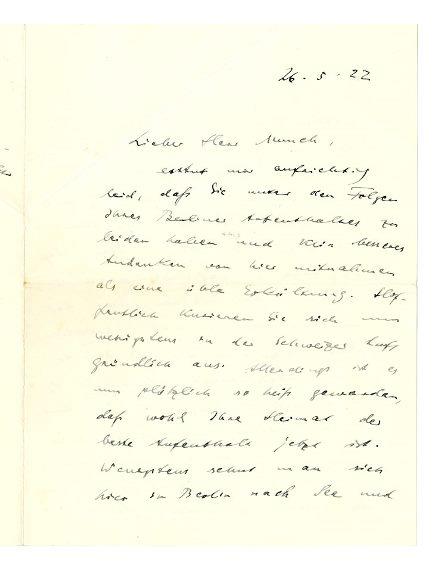 26. 5. 22
Lieber Herr Munch,
es thut mir aufrichtig
leid, daß Sie unter den Folgen
Ihres Berliner Aufenthaltes zu
leiden haben und kein besseres
Andenken von hier mitnahmen
als eine üble Erkältung. Hof-
fentlich kurieren Sie sich nun
wenigstens in der Schweizer Luft
gründlich aus. Allerdings ist es
nun plötzlich so heiß geworden,
daß wohl Ihre Heimat der
beste Aufenthalt jetzt ist.
Wenigstens sehnt man sich
hier in Berlin nach See und